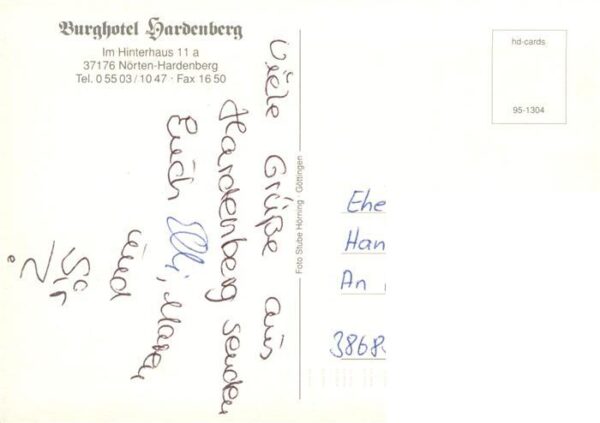 Burghotel Hardenberg
Im Hinterhaus 11 a
37176 Nörten-Hardenberg
Tel. 0 55 03/10 47 · Fax 16 50
Viele Grüße aus
Hardenberg senden
Euch Elli,
und
Foto Stube Hörning · Göttingen
hd-cards
95-1304
Ehe
Han
An
3868